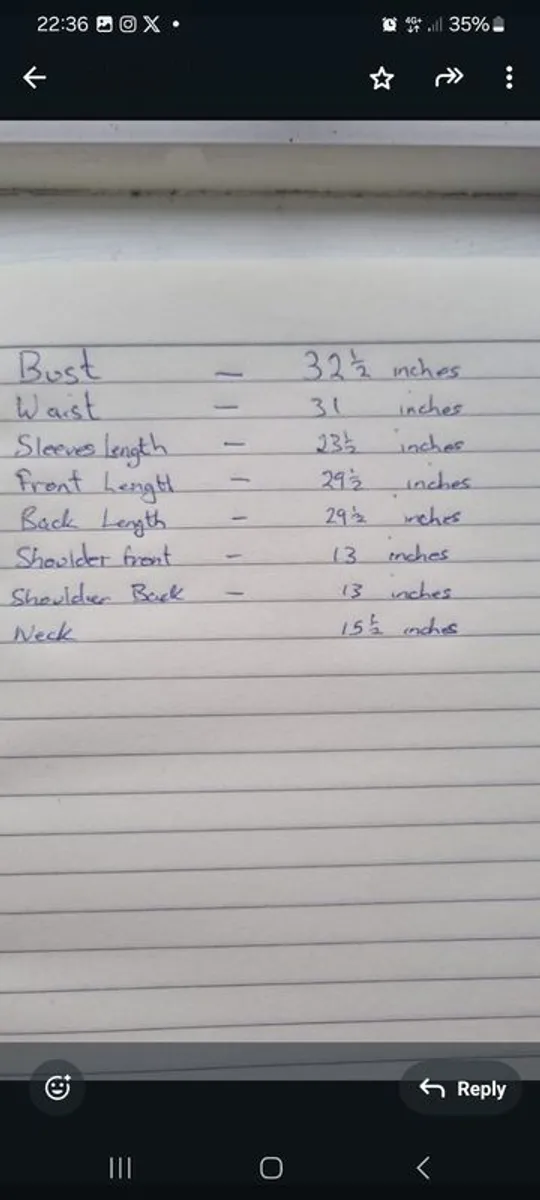 22:36
4G+
35%
Bust — 32 ½ inches
Waist — 31 inches
Sleeves Length — 23½ inches
Front Length — 29½ inches
Back Length — 29½ inches
Shoulder front — 13 inches
Shoulder Back — 13 inches
Neck 15½ inches
Reply